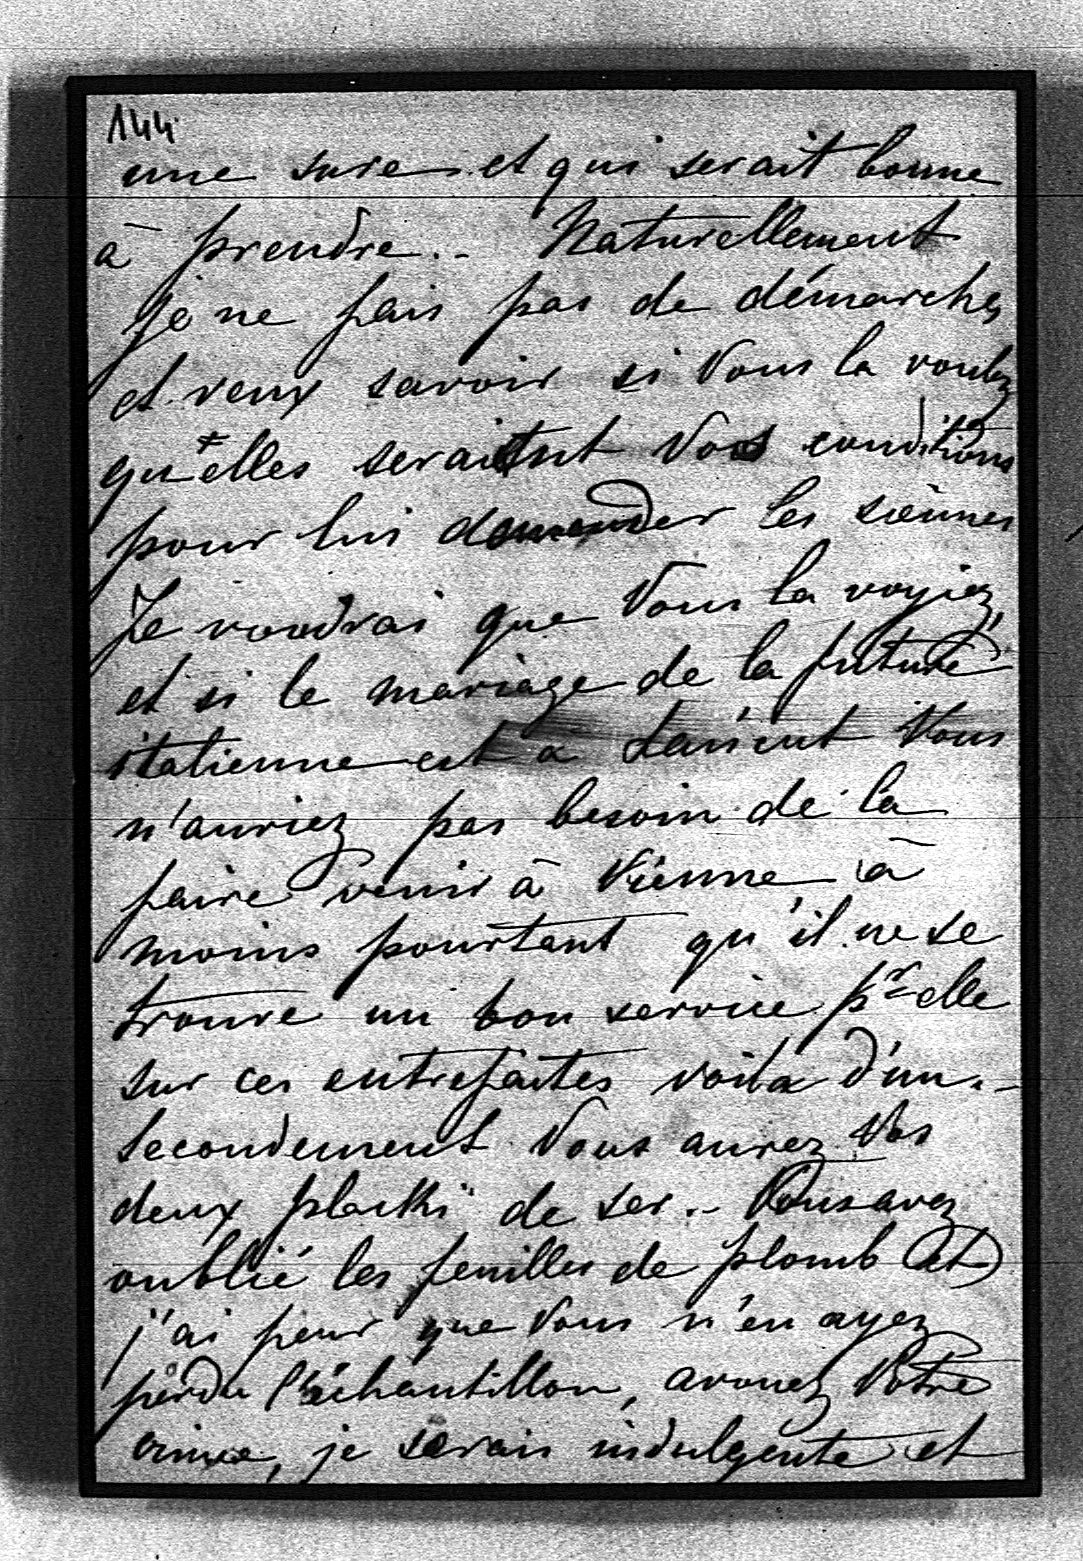 144
une sure et qui serait bonne
à prendre .. Naturellement
je ne fais pas de démarches
et veux savoir si Vous la voulez
qu'elles seraient Vos conditions
pour lui demander les siennes
Je voudrai que Vous la voyiez,
et si le mariage de la future
italienne est à Vous
n'auriez pas besoin de la
faire venir à Vienne à
moins pourtant qu'il ne se
trouve un bon service pr elle
sur ces entrefaites voila d'un. -
Secondement Vous aurez Vos
deux de ser .. Vous avez
oublié les feuilles de plomb et
j'ai peur que Vous n'en ayez
perdu l'échantillon, avouez Votre
crime, je serais indulgente et